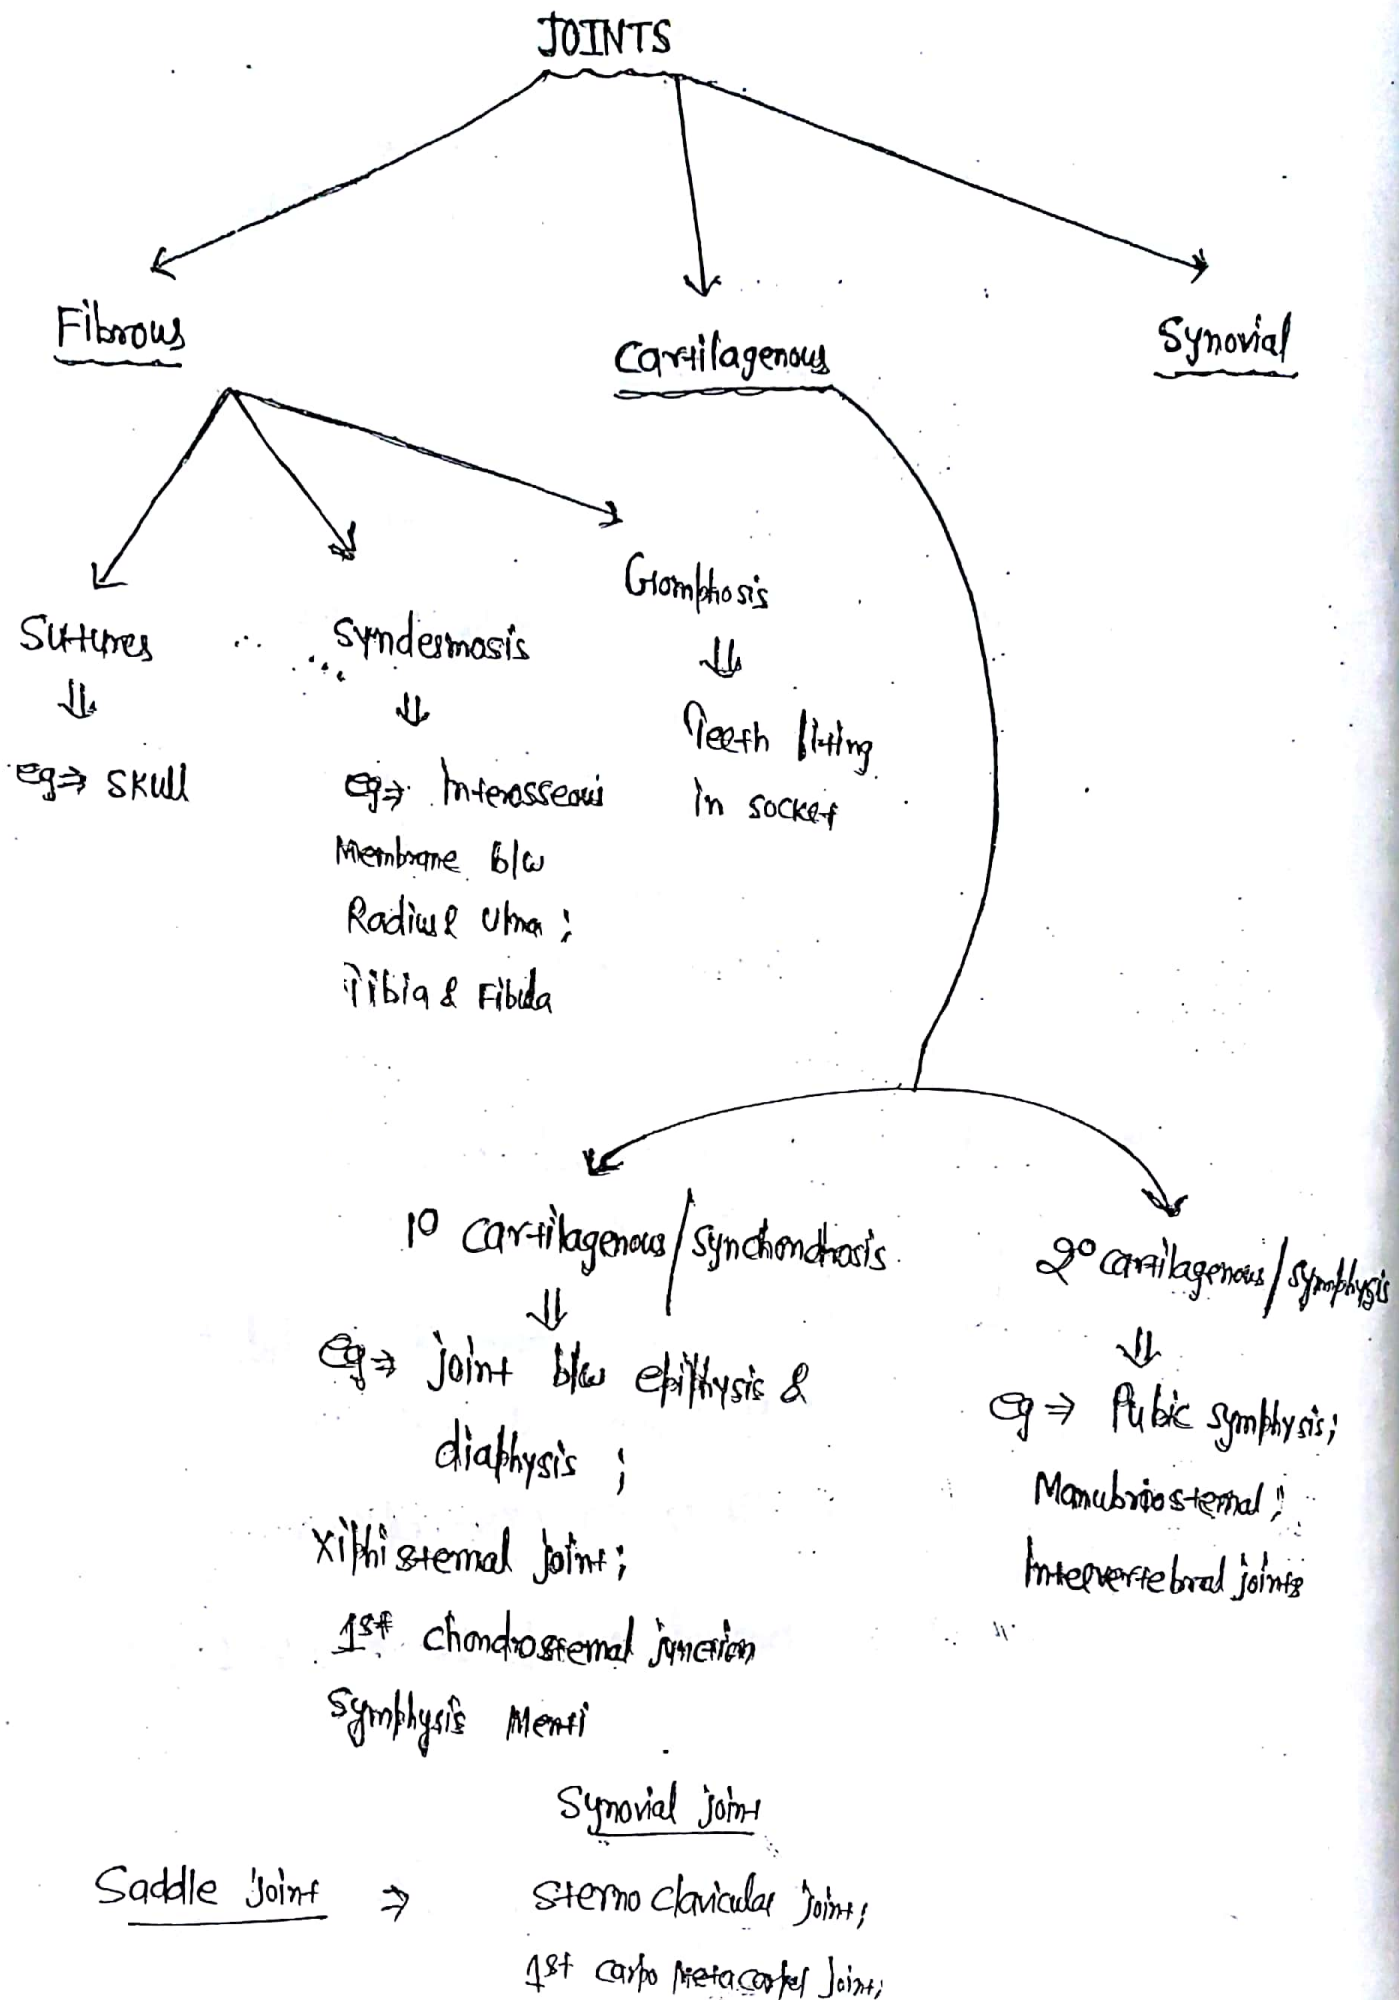 JOINTS
Fibrous
Cartilagenous
Synovial
Sutures
⇓
eg⇒ Skull
Syndesmosis
⇓
eg⇒ Interosseous
Membrane b/w
Radius & Ulna ;
Tibia & Fibula
Gomphosis
⇓
Teeth fitting
in socket
1° Cartilagenous / Synchondrosis
⇓
eg⇒ joint b/w epiphysis &
diaphysis ;
Xiphisternal joint ;
1st chondrosternal junction
Symphysis Menti
2° cartilagenous / Symphysis
⇓
eg ⇒ Pubic symphysis ;
Manubriosternal ;
Intervertebral joints
Synovial joint
Saddle joint ⇒ Sterno clavicular joint ;
1st carpo metacarpal joint ;